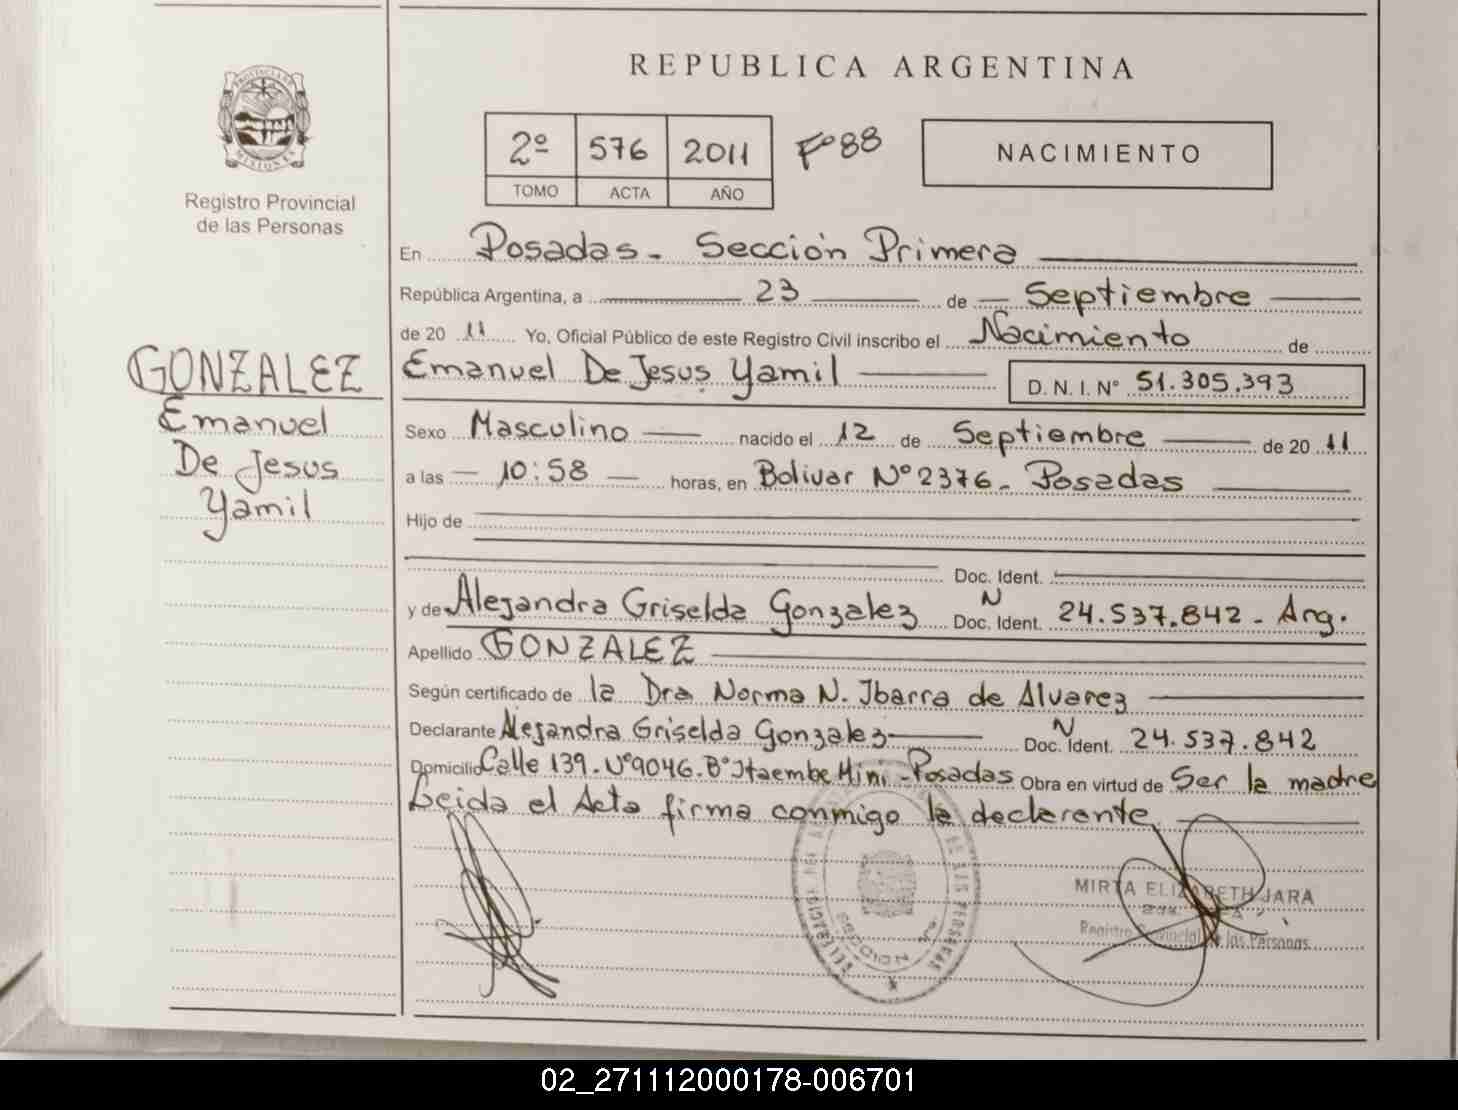 REPUBLICA ARGENTINA
PROVINCIA DE MISIONES
Registro Provincial
de las Personas
2º 576 2011 Fº 88
TOMO ACTA AÑO
NACIMIENTO
En Posadas - Sección Primera
República Argentina, a 23 de Septiembre
de 20 11 Yo, Oficial Público de este Registro Civil inscribo el Nacimiento de
Emanuel De Jesus Yamil D. N. I. Nº 51.305.393
GONZALEZ
Emanuel
De Jesus
Yamil
Sexo Masculino nacido el 12 de Septiembre de 20 11
a las 10:58 horas, en Bolivar Nº 2376 - Posadas
Hijo de
Doc. Ident.
y de Alejandra Griselda Gonzalez Doc. N Ident. 24.537.842 - Arg.
Apellido GONZALEZ
Según certificado de la Dra Norma N. Ibarra de Alvarez
Declarante Alejandra Griselda Gonzalez Doc. N Ident. 24.537.842
Domicilio Calle 139. Nº 9046. Bº Itaembe Mini - Posadas Obra en virtud de Ser la madre
Leida el Acta firma conmigo la declarante
DELEGACION
DE LAS PERSONAS
SECCION
MIRTA ELIZABETH JARA
Registro Provincial de las Personas
02_271112000178-006701